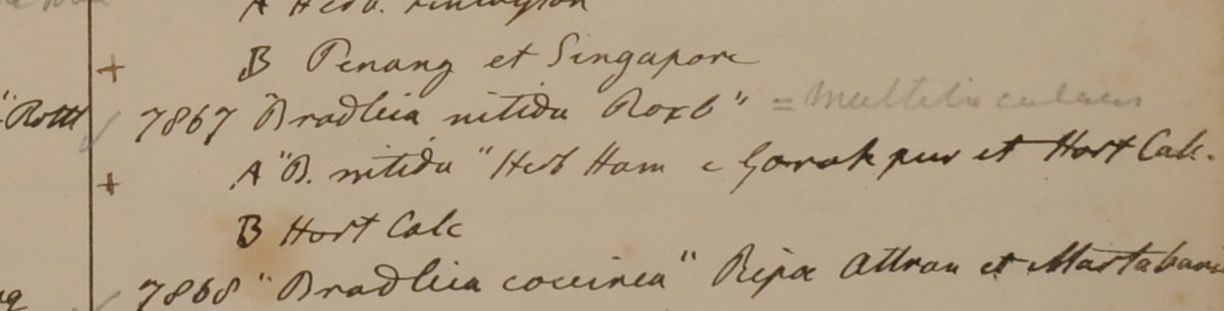 A Herb. Finlayson
+ B Penang et Singapore
"Rottl 7867 "Bradleia nitida Roxb" = Multilocularis
+ A "B. nitida" Herb Ham e Gorakpur et Hort Calc.
B Hort Calc
7868 "Bradleia coccinea" Ripa Attran et Martaban